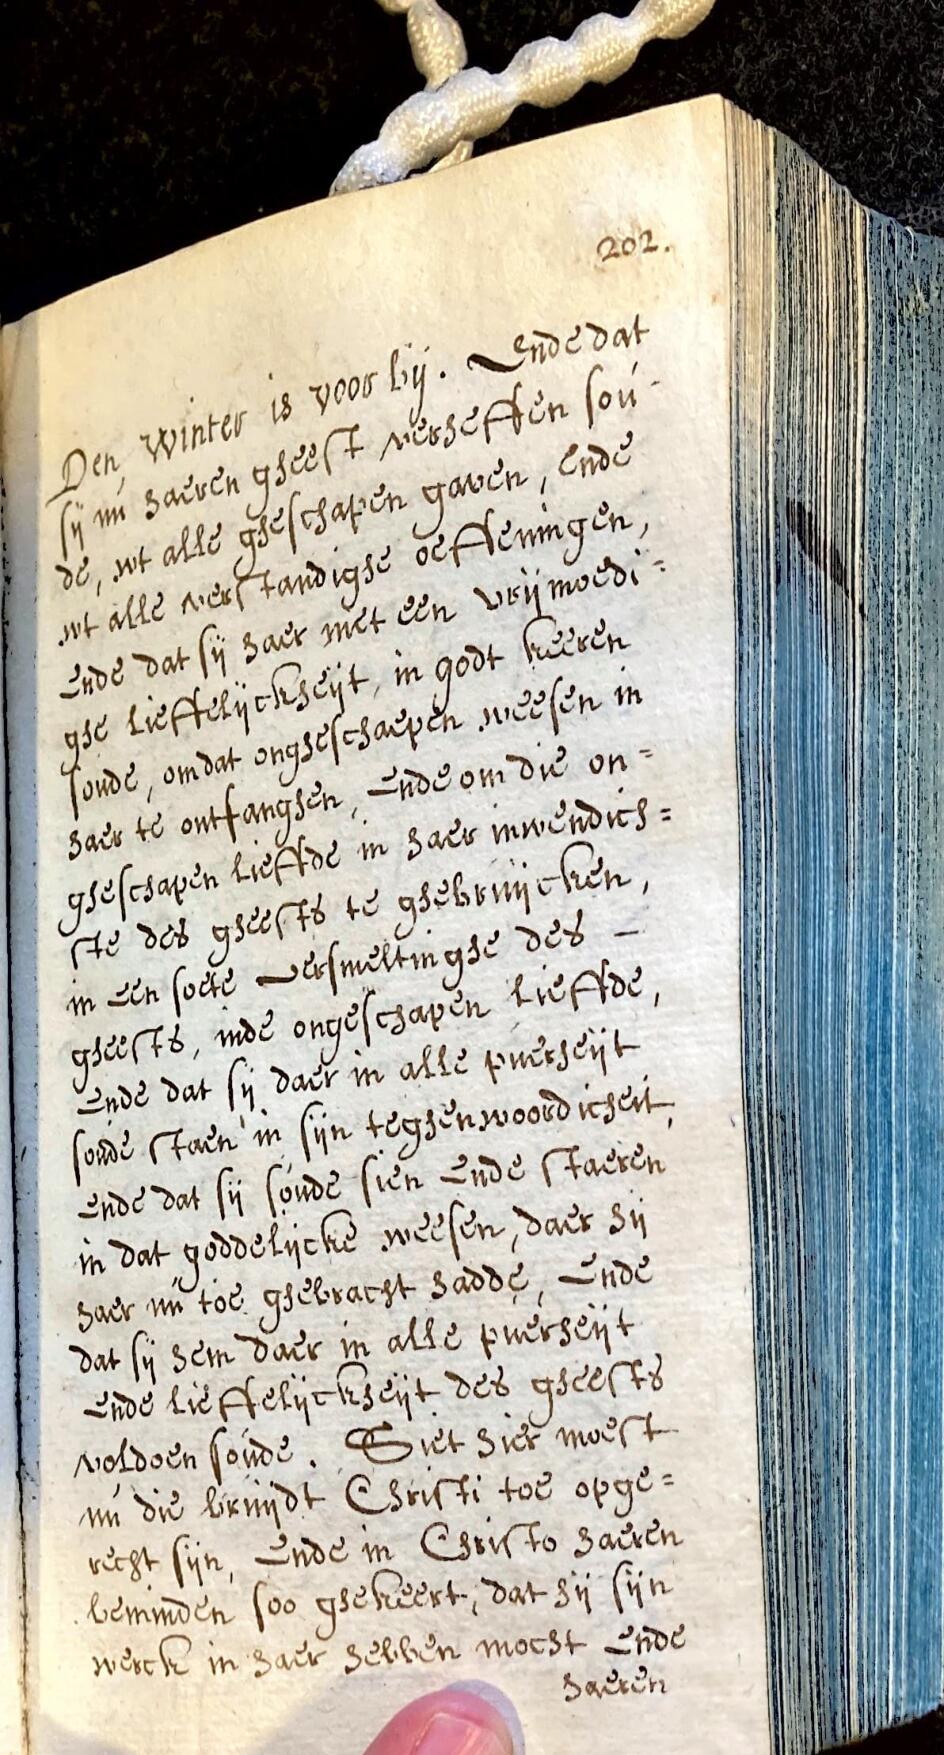 202.
Den, winter is voor bij. Ende dat
sij nú haeren gheest verheffen soú-
de, wt alle gheschapen gaven, Ende
wt alle verstandighe oeffeningen,
Ende dat sij haer met een vrijmoedi=
ghe lieffelijckheijt, in godt keeren
soude, omdat ongheschaepen weesen in
haer te ontfanghen, Ende om die on=
gheschapen lieffde in haer inwendich=
ste des gheests te ghebruijcken,
in een soete versmeltinghe des –
gheests, inde ongeschapen lieffde,
Ende dat sij daer in alle puerheijt
soúde staen in sijn teghenwoordicheit,
Ende dat sij soúde sien Ende staeren
in dat goddelijcke weesen, daer hij
haer nú toe ghebracht hadde, Ende
dat sij hem daer in alle puerheijt
Ende lieffelijckheijt des gheests
voldoen soúde. Siet hier moest
nú die bruijdt Christi toe opge=
recht sijn, Ende in Christo haeren
beminden soo ghekeert, dat hij sijn
werck in haer hebben mocht Ende
haeren